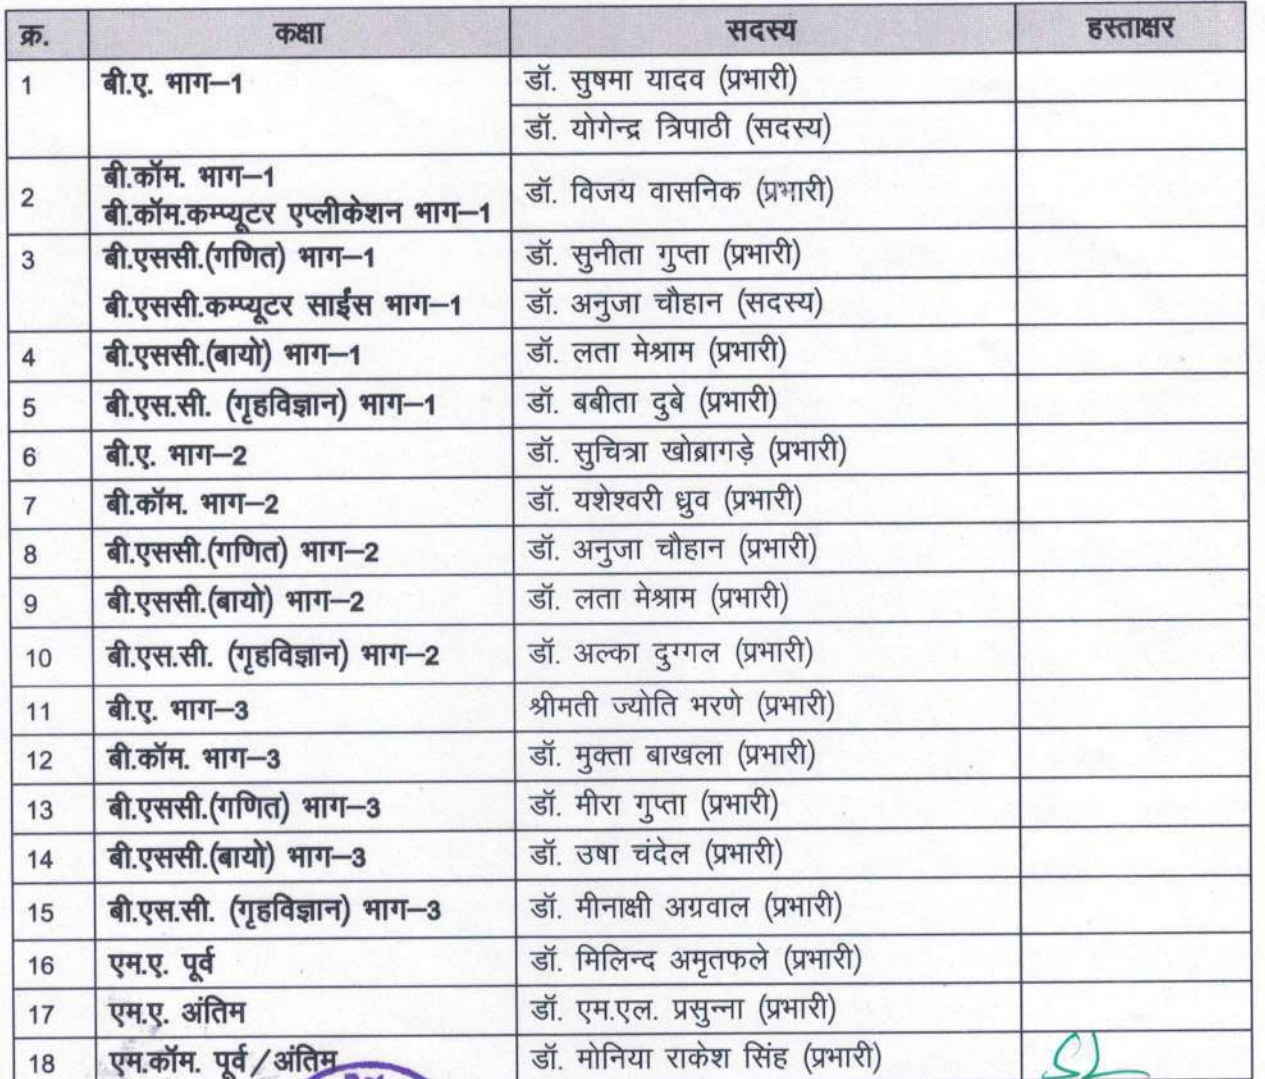 क्र. कक्षा सदस्य हस्ताक्षर
1 बी.ए. भाग–1 डॉ. सुषमा यादव (प्रभारी)
डॉ. योगेन्द्र त्रिपाठी (सदस्य)
2 बी.कॉम. भाग–1
बी.कॉम.कम्प्यूटर एप्लीकेशन भाग–1 डॉ. विजय वासनिक (प्रभारी)
3 बी.एससी.(गणित) भाग–1 डॉ. सुनीता गुप्ता (प्रभारी)
बी.एससी.कम्प्यूटर साईंस भाग–1 डॉ. अनुजा चौहान (सदस्य)
4 बी.एससी.(बायो) भाग–1 डॉ. लता मेश्राम (प्रभारी)
5 बी.एस.सी. (गृहविज्ञान) भाग–1 डॉ. बबीता दुबे (प्रभारी)
6 बी.ए. भाग–2 डॉ. सुचित्रा खोब्रागड़े (प्रभारी)
7 बी.कॉम. भाग–2 डॉ. यशेश्वरी ध्रुव (प्रभारी)
8 बी.एससी.(गणित) भाग–2 डॉ. अनुजा चौहान (प्रभारी)
9 बी.एससी.(बायो) भाग–2 डॉ. लता मेश्राम (प्रभारी)
10 बी.एस.सी. (गृहविज्ञान) भाग–2 डॉ. अल्का दुग्गल (प्रभारी)
11 बी.ए. भाग–3 श्रीमती ज्योति भरणे (प्रभारी)
12 बी.कॉम. भाग–3 डॉ. मुक्ता बाखला (प्रभारी)
13 बी.एससी.(गणित) भाग–3 डॉ. मीरा गुप्ता (प्रभारी)
14 बी.एससी.(बायो) भाग–3 डॉ. उषा चंदेल (प्रभारी)
15 बी.एस.सी. (गृहविज्ञान) भाग–3 डॉ. मीनाक्षी अग्रवाल (प्रभारी)
16 एम.ए. पूर्व डॉ. मिलिन्द अमृतफले (प्रभारी)
17 एम.ए. अंतिम डॉ. एम.एल. प्रसुन्ना (प्रभारी)
18 एम.कॉम. पूर्व/अंतिम डॉ. मोनिया राकेश सिंह (प्रभारी)